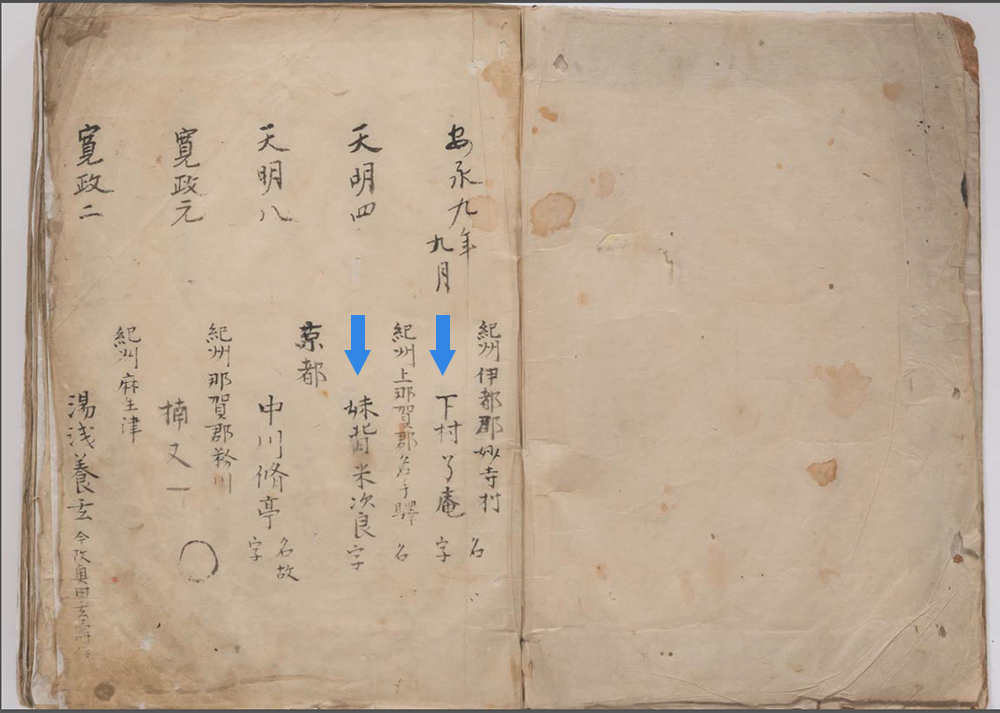 安永九年
九月
紀州伊都郡妙寺村 名
下村了庵 字
天明四
紀州上那賀郡名手驛 名
妹背米次良 字
天明八
京都
中川脩亭 名故
字
寛政元
紀州那賀郡粉川
楠又一
寛政二
紀州麻生津
湯浅養玄 今改奥田玄壽